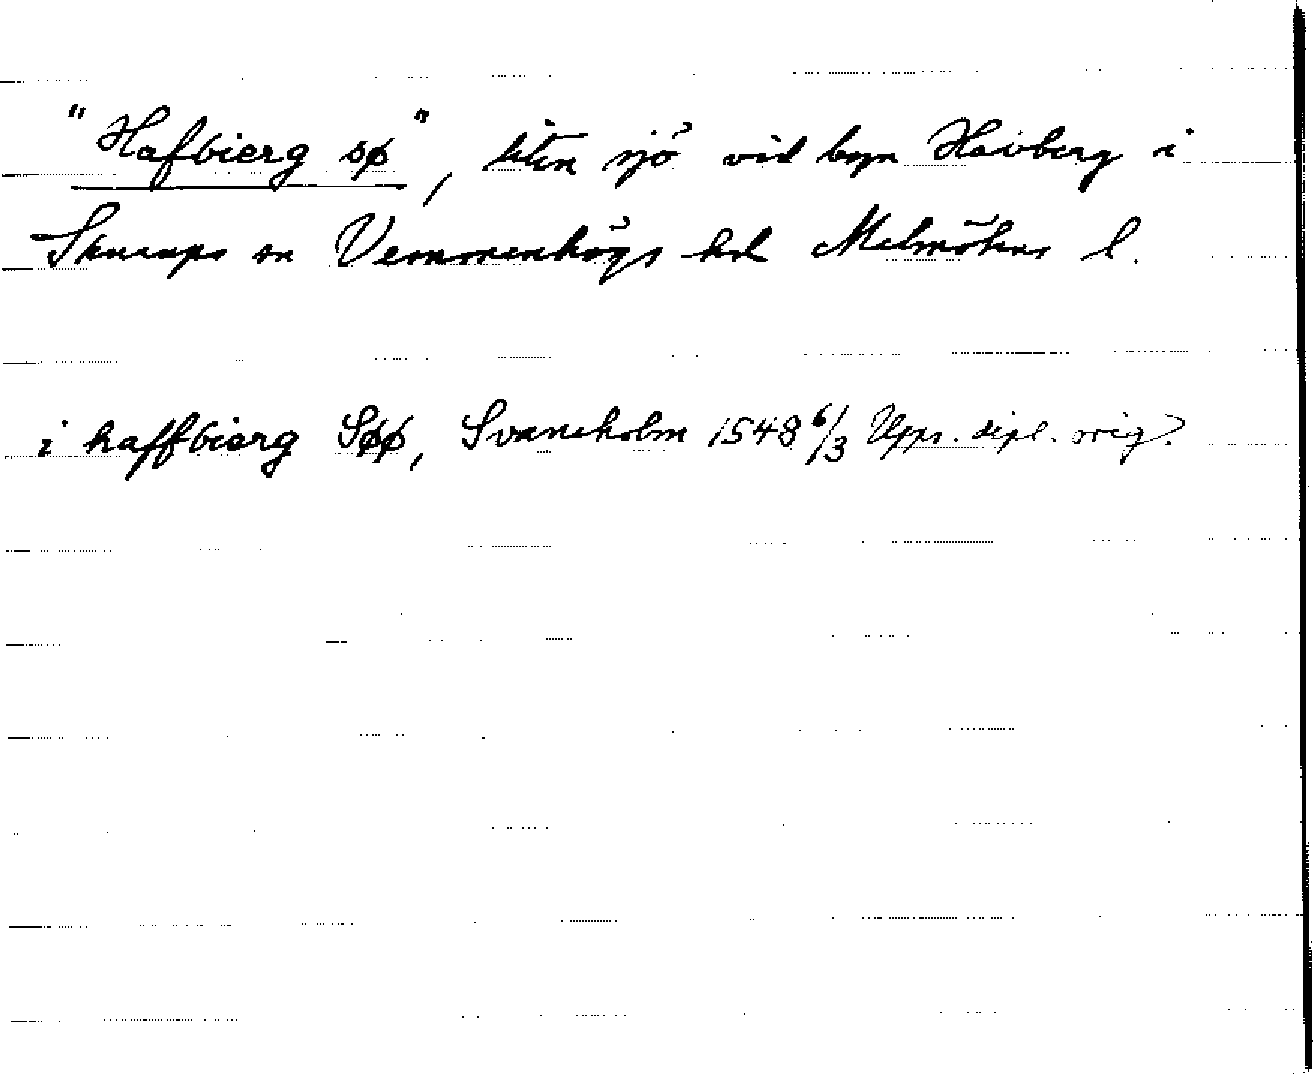 "Hafbierg sø", liten sjö vid byn Havberg i
Skurups sn Vemmenhögs hd Malmöhus l.
i haffbierg Søø, Svaneholm 1548 6/3 Upps. dipl. orig.